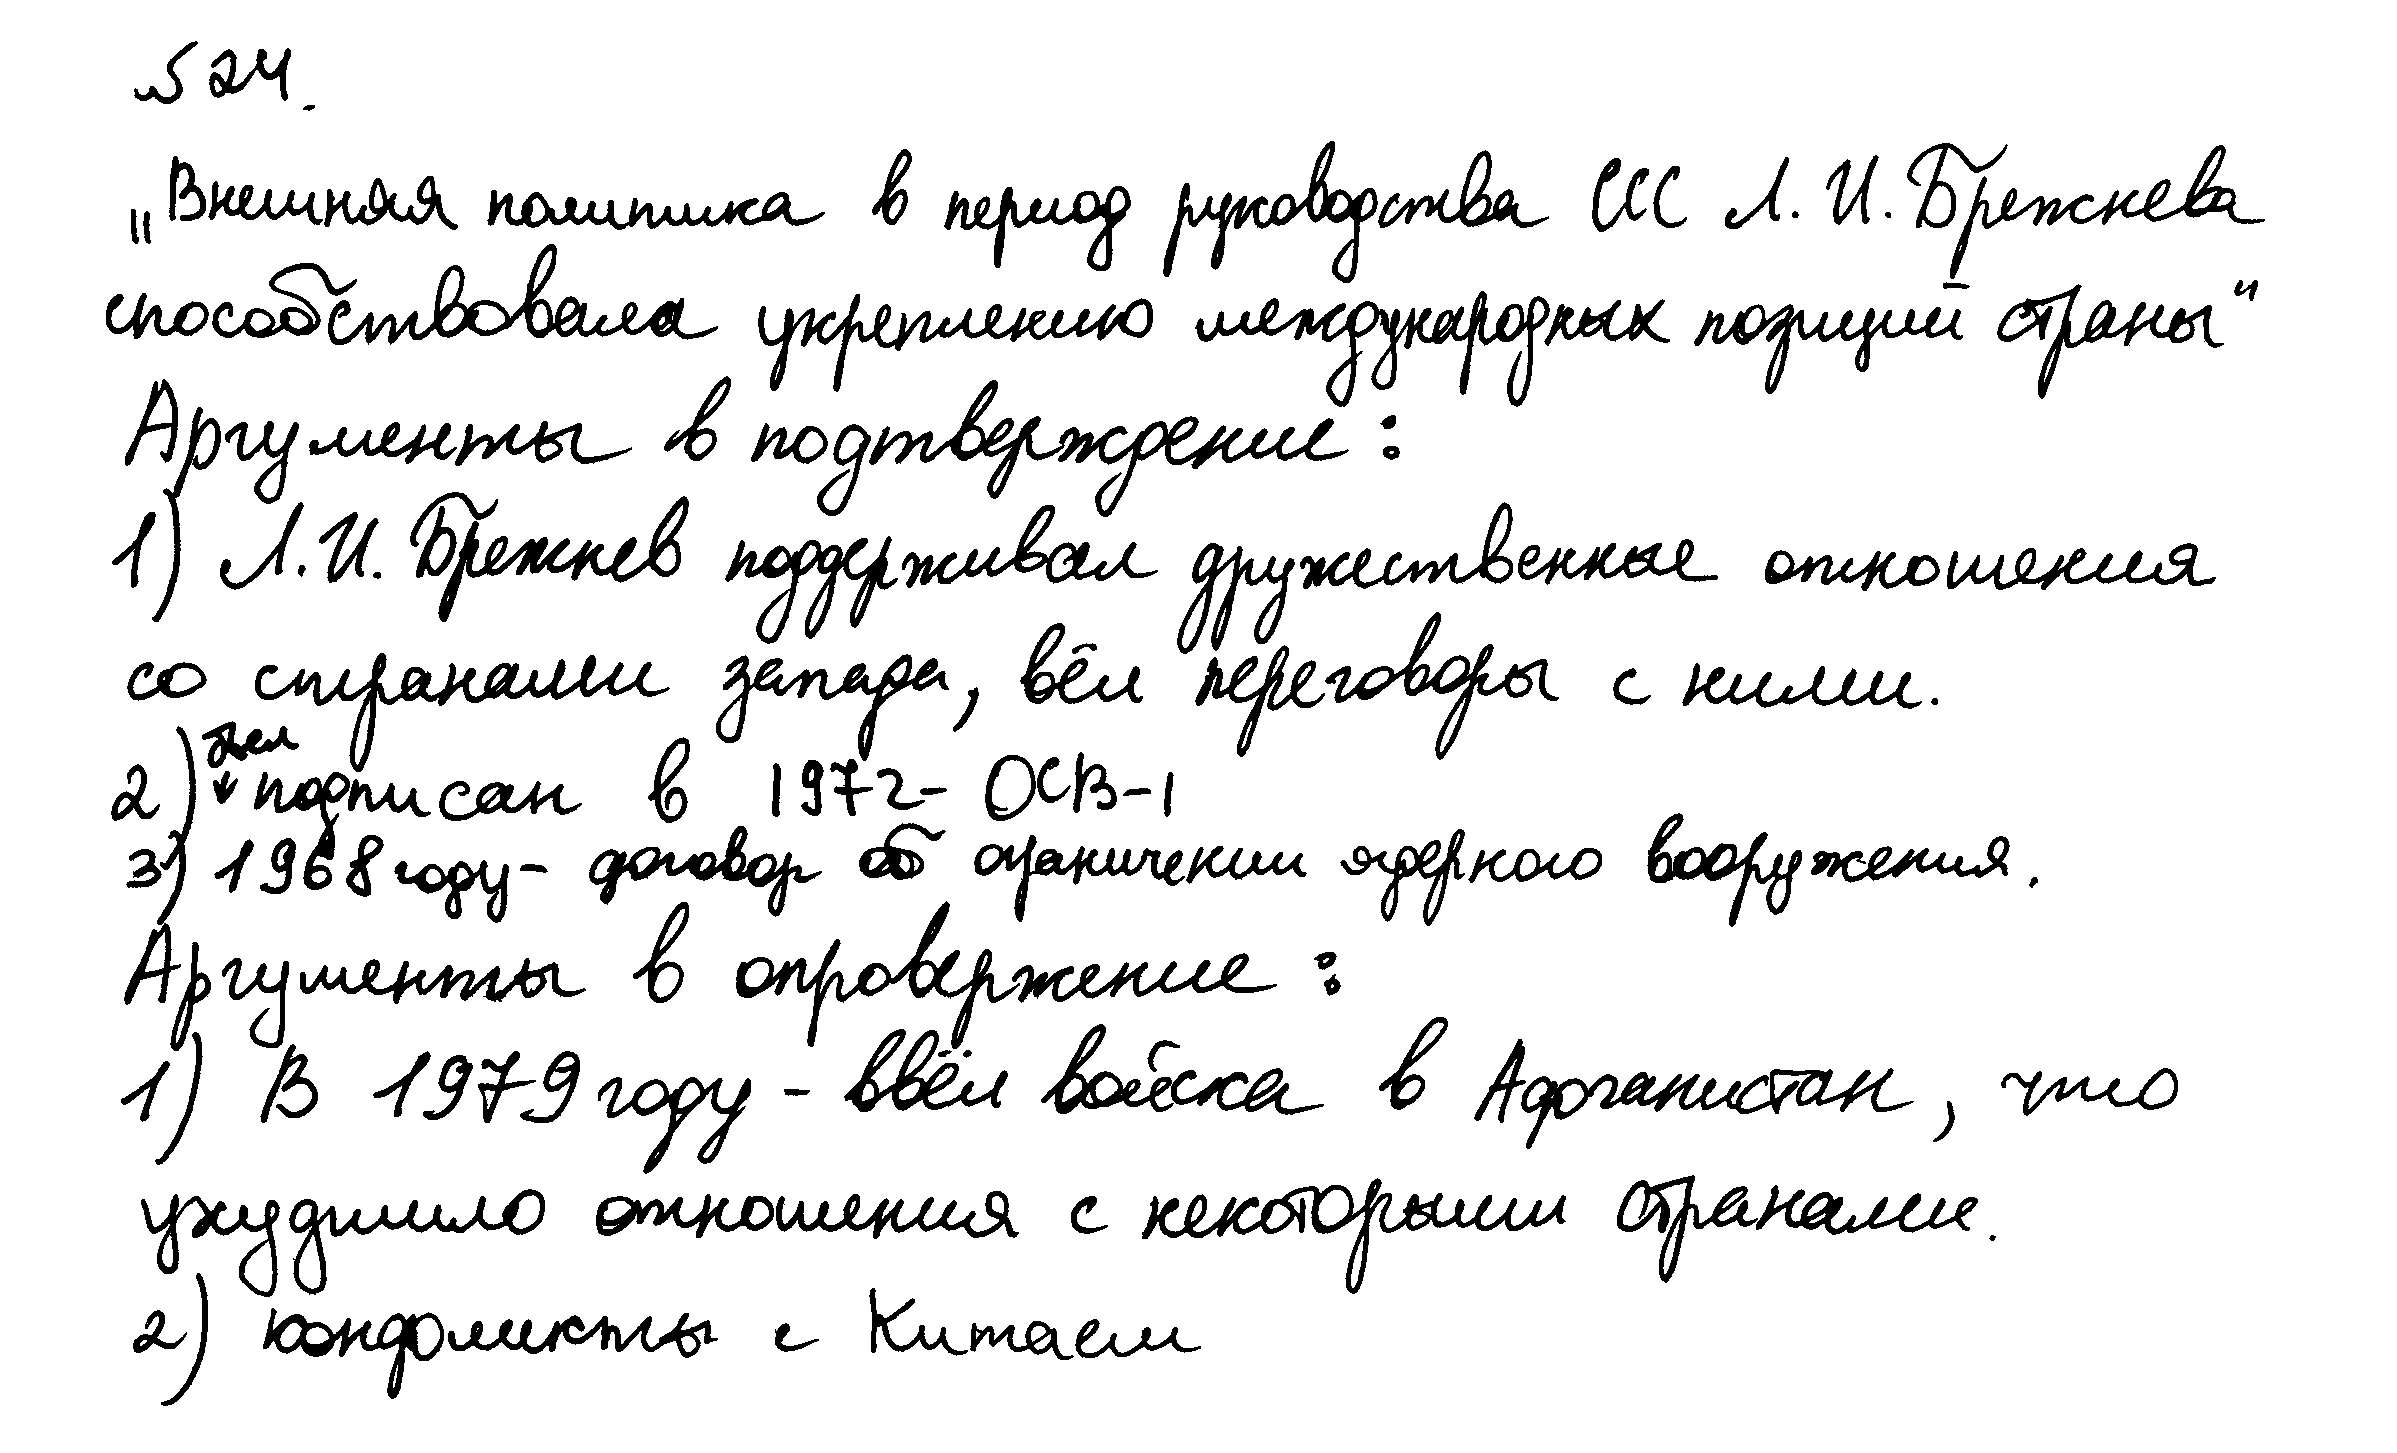 № 24.
„Внешняя политика в период руководства СССР Л. И. Брежнева
способствовала укреплению международных позиций страны"
Аргументы в подтверждение:
1) Л. И. Брежнев поддерживал дружественные отношения
со странами запада, вёл переговоры с ними.
был
2) подписан в 1972 - ОСВ-1
3) 1968 году - договор об ограничении ядерного вооружения.
Аргументы в опровержение:
1) В 1979 году - ввёл войска в Афганистан, что
ухудшило отношения с некоторыми странами.
2) конфликты с Китаем